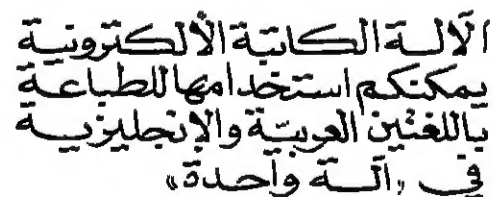 الآلة الكاتبة الألكترونية
يمكنكم استخدامها للطباعة
باللغتين العربية والإنجليزية
في «آلة واحدة»